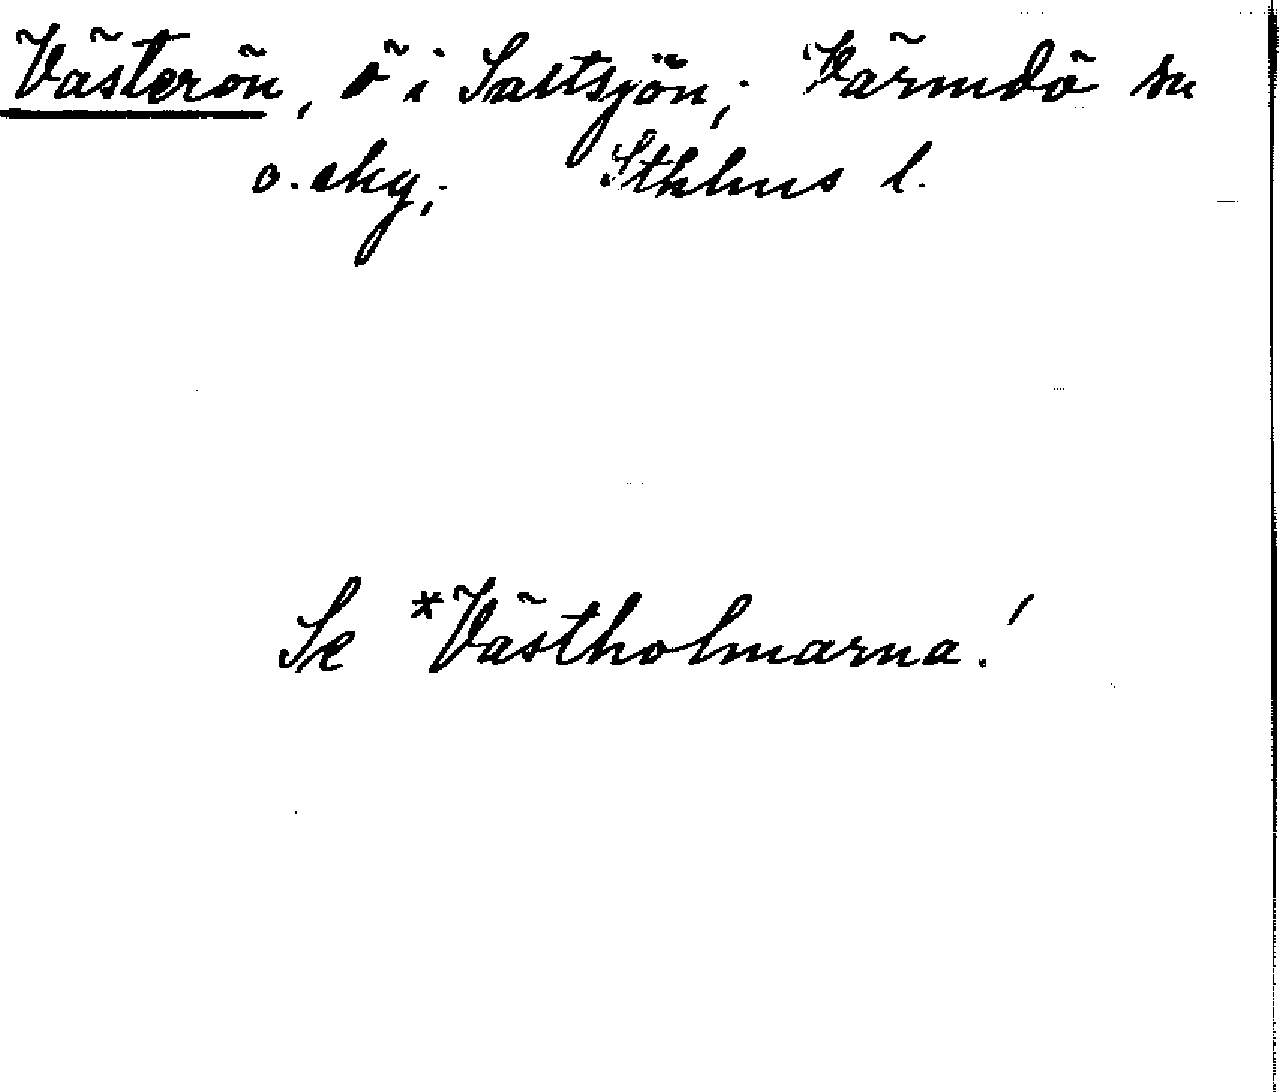 Västerön, ö i Saltsjön; Värmdö sn
o. skg; Sthlms l.
Se *Västholmarna!